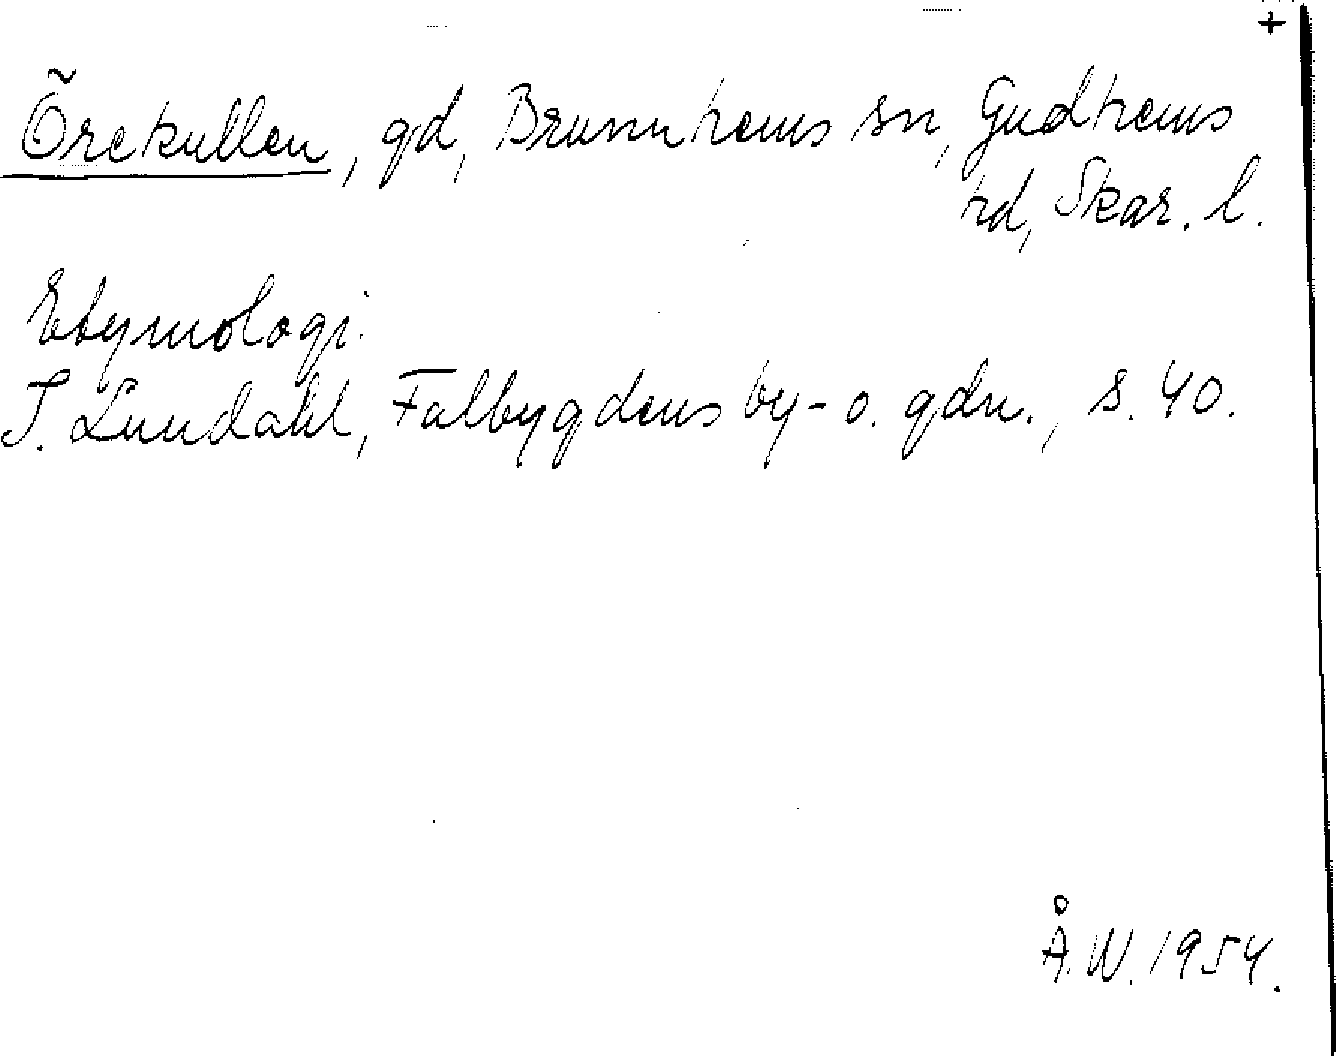 +
Örekullen, gd, Brunnhems sn, Gudhems
hd, Skar. l.
Etymologi.
I. Lundahl, Falbygdens by- o. gdn., s. 40.
Å.W. 1954.